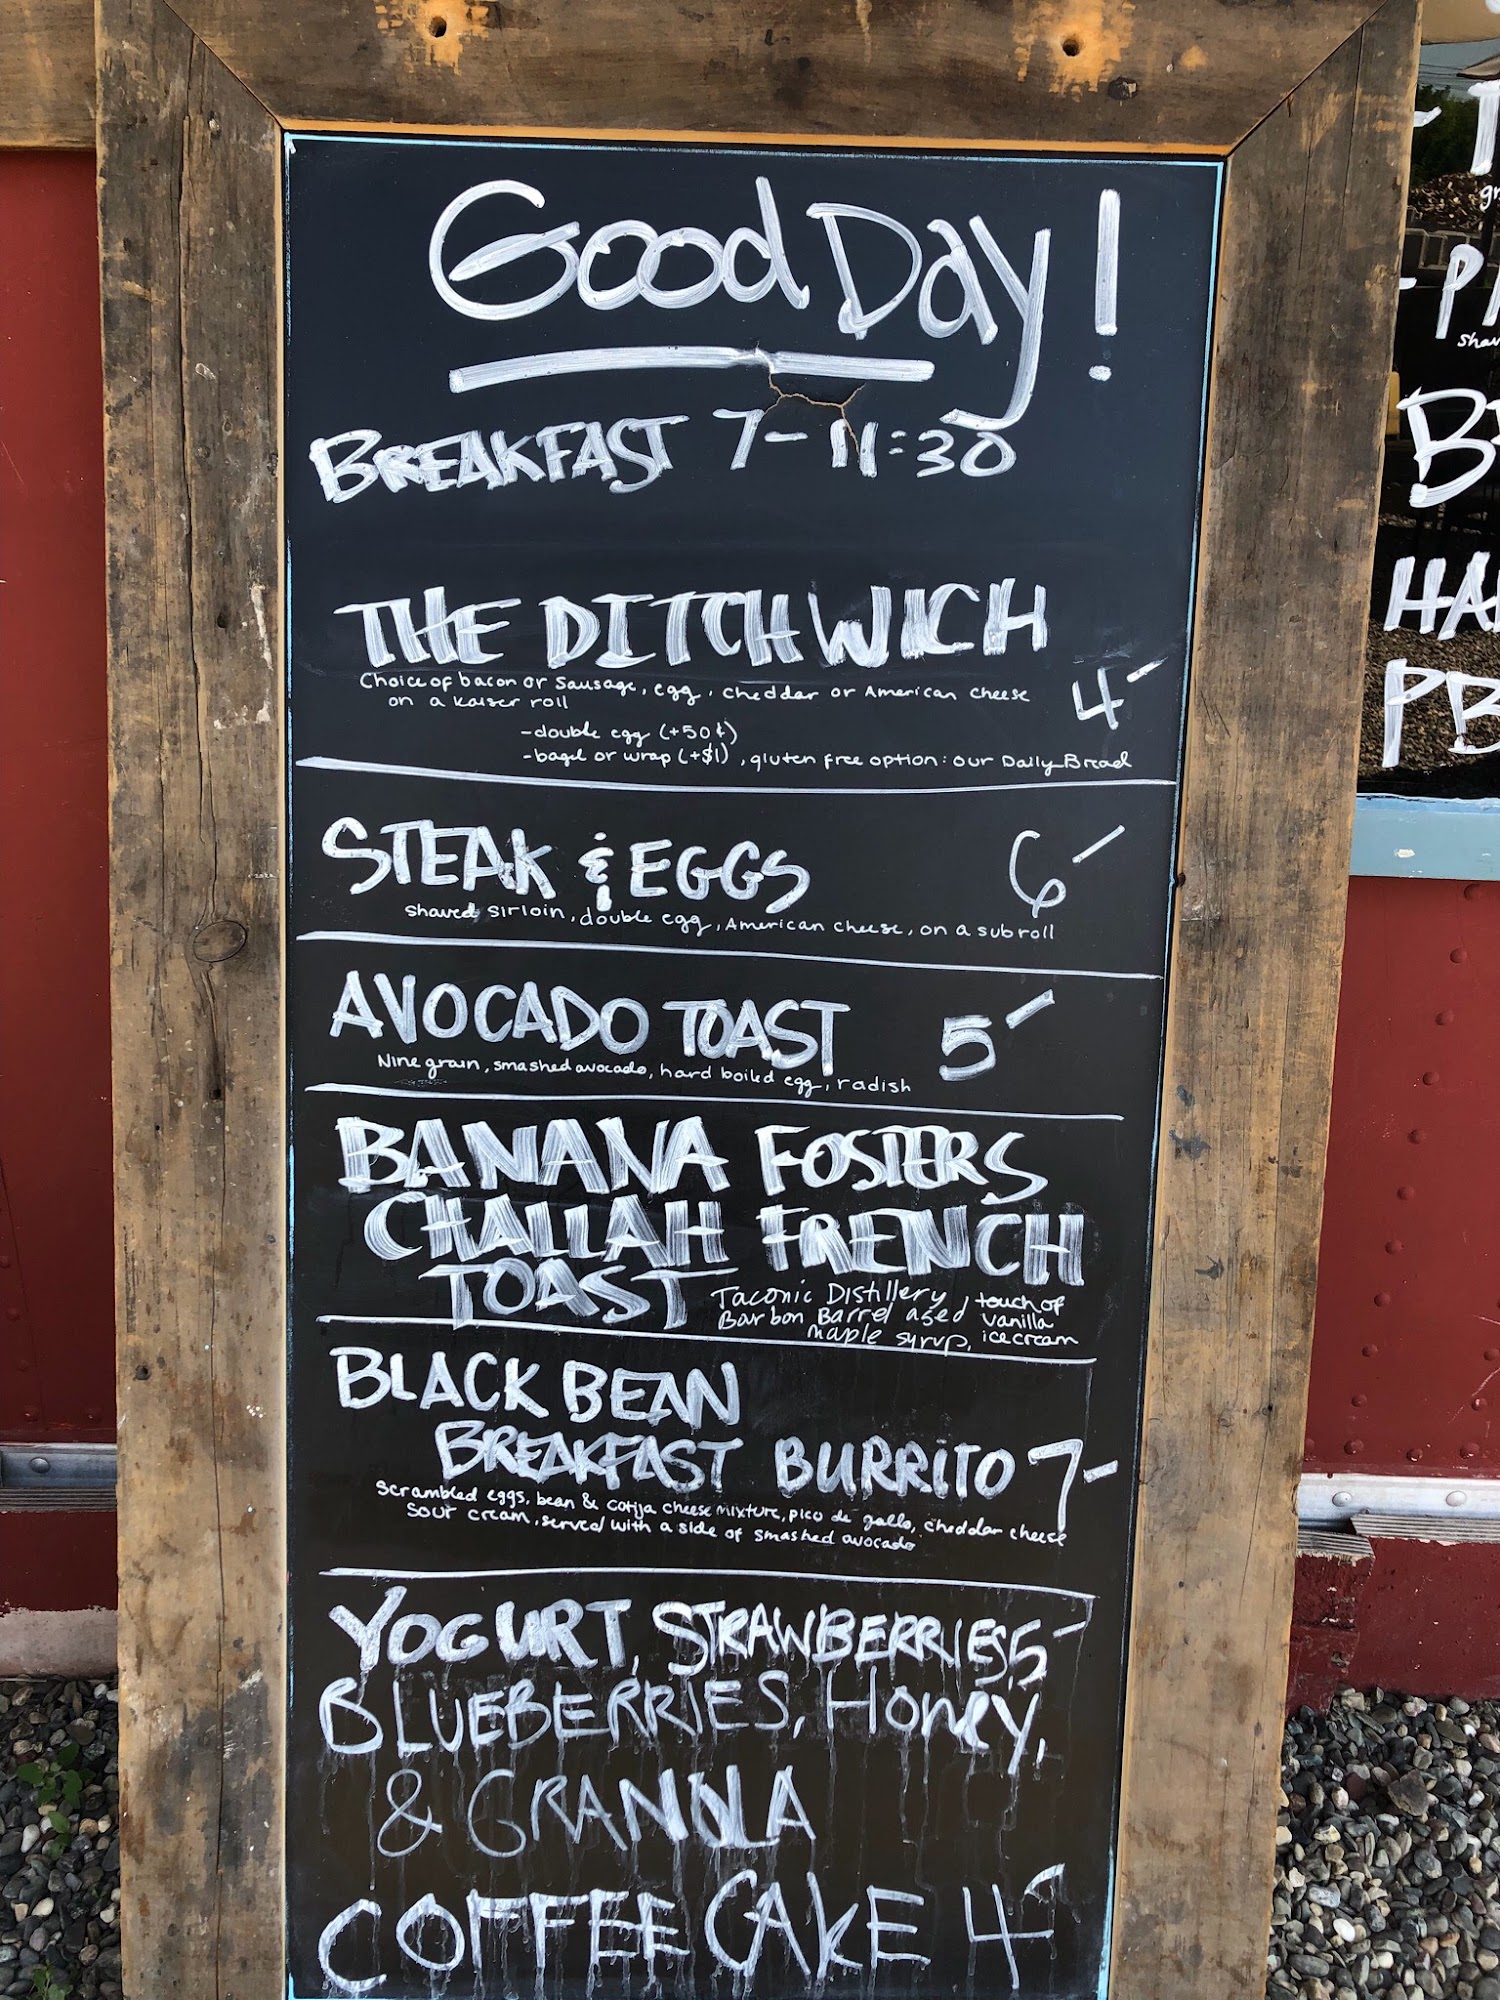 Good Day!
BREAKFAST 7-11:30
THE DITCHWICH
Choice of bacon or sausage, egg, cheddar or American cheese 4-
on a kaiser roll
-double egg (+50¢)
-bagel or wrap (+$1), gluten free option: our Daily Bread
STEAK & EGGS 6-
shaved sirloin, double egg, American cheese, on a sub roll
AVOCADO TOAST 5-
Nine grain, smashed avocado, hard boiled egg, radish
BANANA FOSTERS
CHALLAH FRENCH
TOAST
Taconic Distillery
Bourbon Barrel aged
maple syrup,
touch of
vanilla
ice cream
BLACK BEAN
BREAKFAST BURRITO 7-
scrambled eggs, bean & cotija cheese mixture, pico de gallo, cheddar cheese
sour cream, served with a side of smashed avocado
YOGURT, STRAWBERRIES 5-
BLUEBERRIES, Honey,
& GRANOLA
COFFEE CAKE 4-
HA
PB